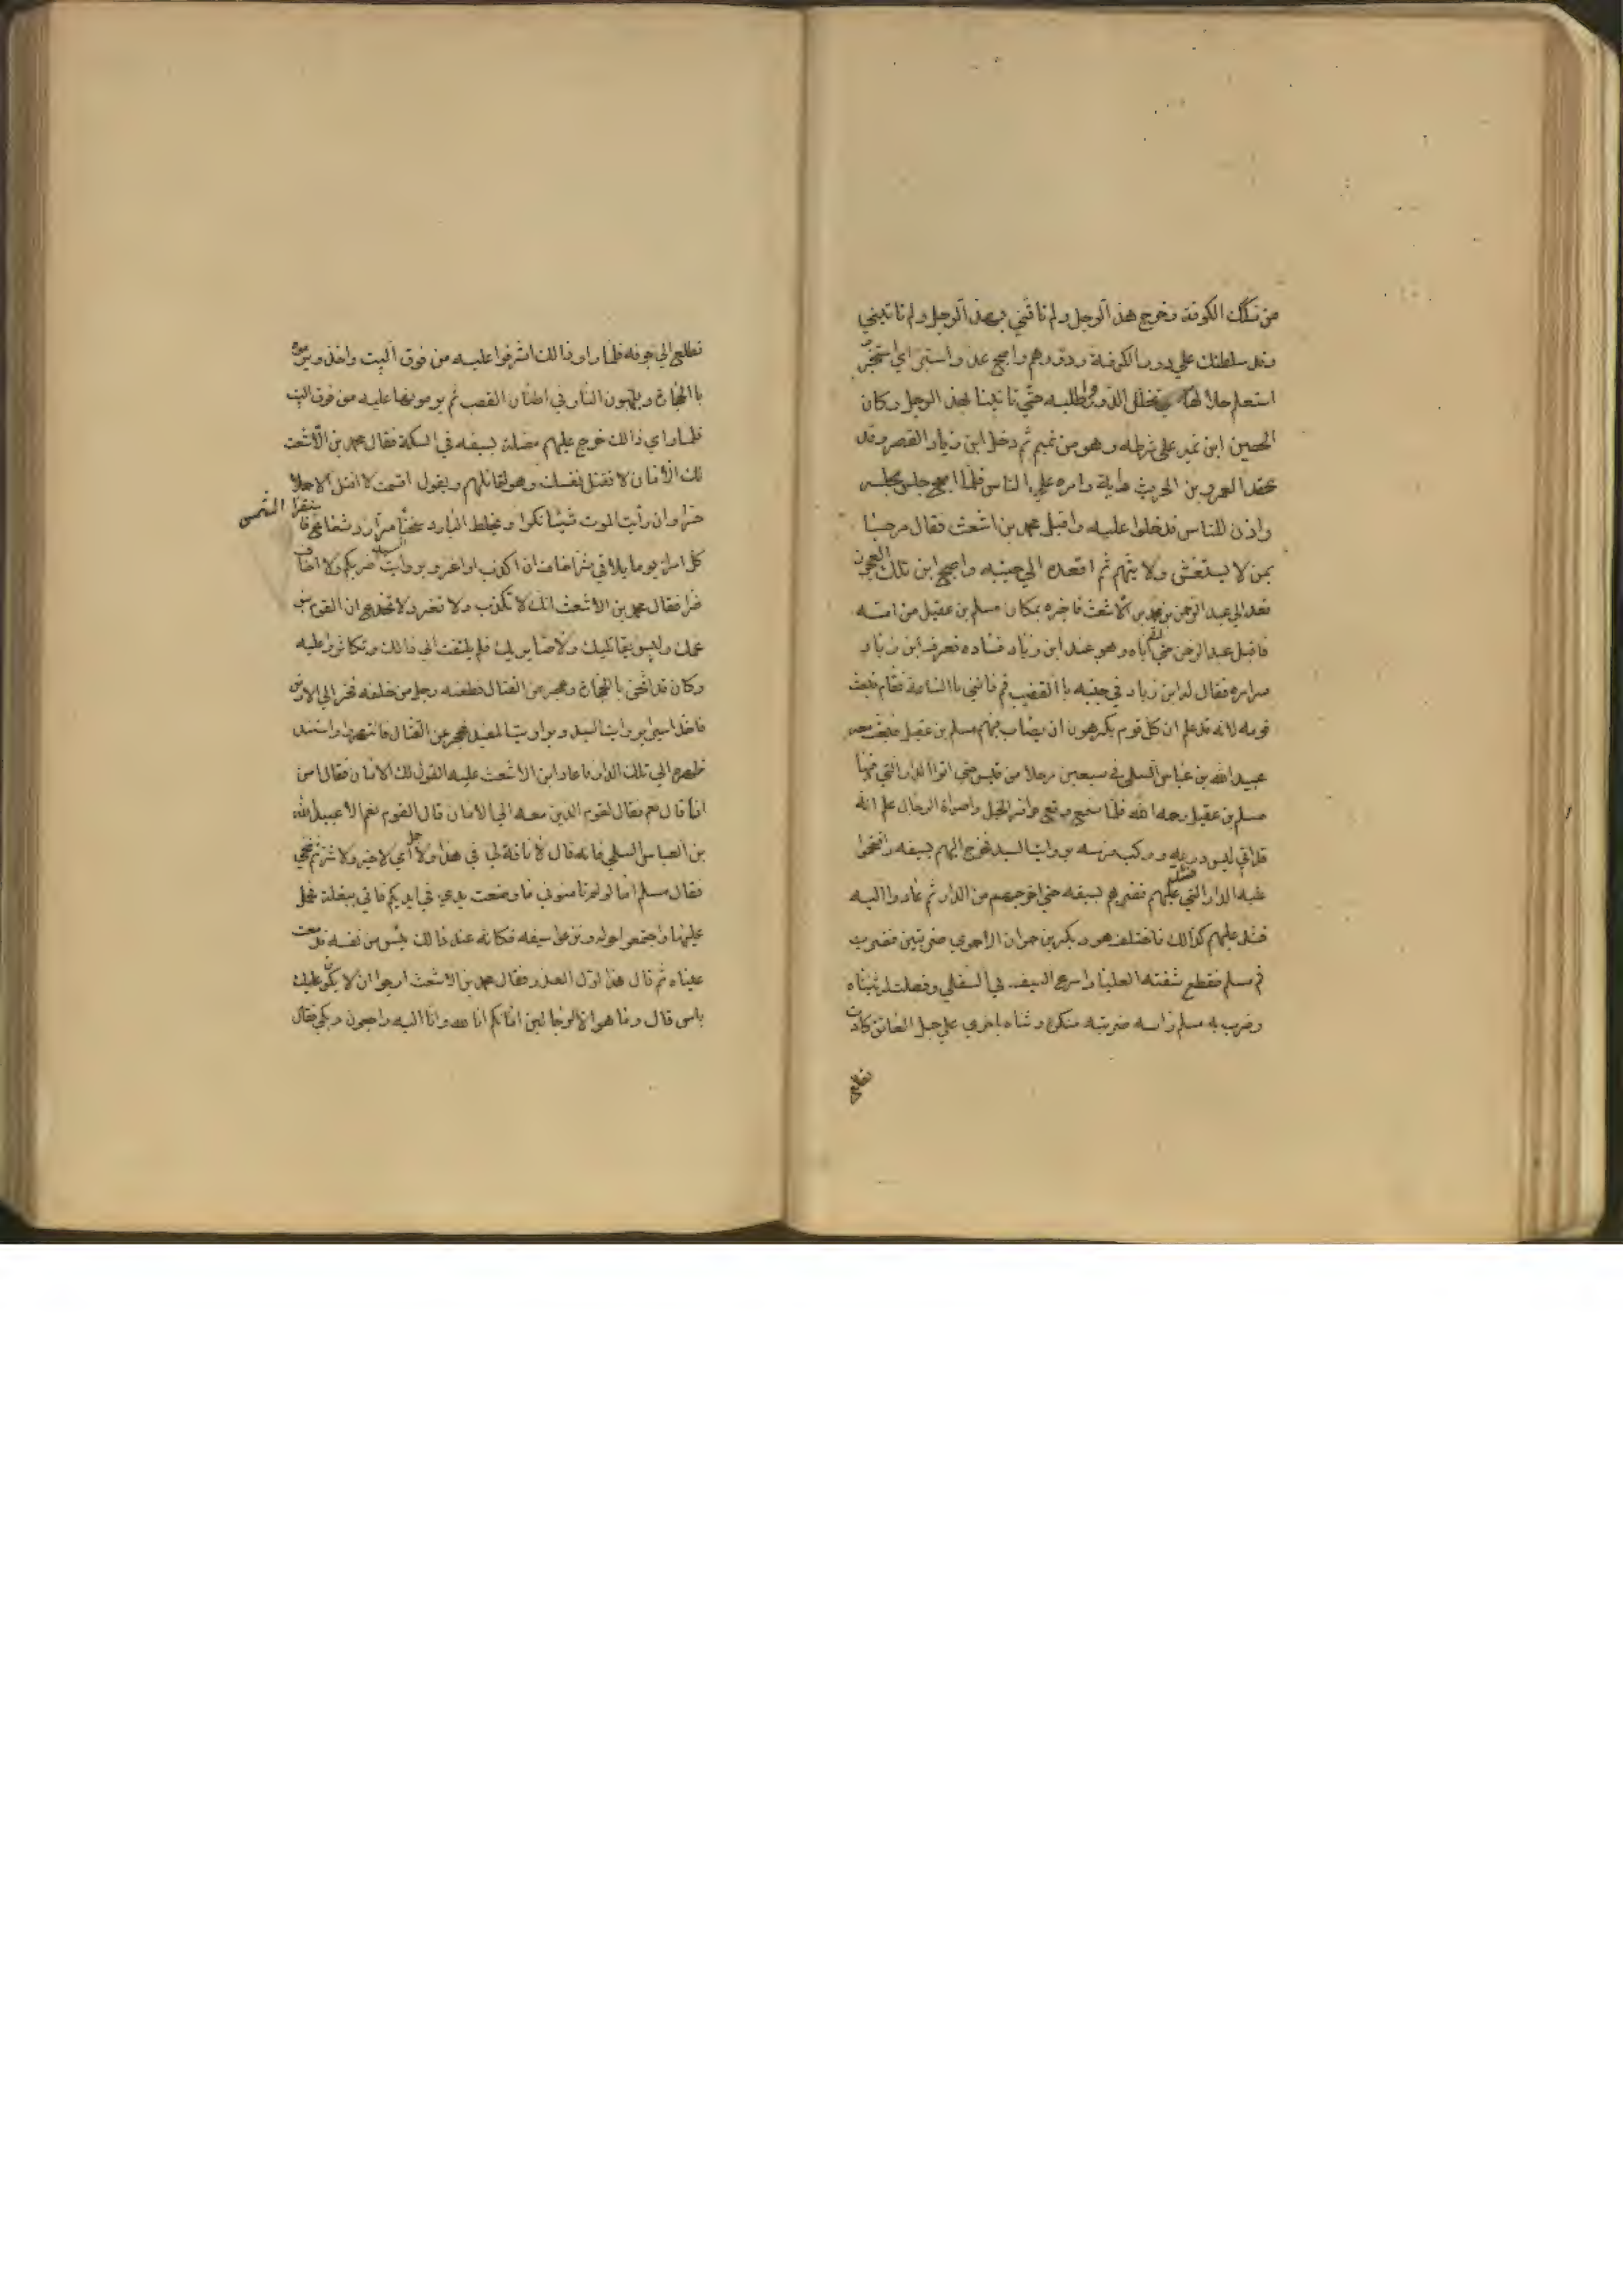 من سكك الكوفة وخرج هذ الرجل ولم تاتني بهذ الرجل ولم تاتيني
وقد سلطتك علي دور الكوفة ودورهم واصبح غد واستبر اي استخبر
الدور حتي تاتينا بهذ الرجل وكان
الحصين ابن نمير علي شرطه وهو من تميم ثم دخل ابن زياد القصر وقد
عقد العمرو بن الحريث راية وامره علي الناس فلما اصبح جلس مجلسه
واذن للناس فدخلوا عليه واقبل محمد بن اشعث فقال مرحبا
بمن لا يستغش ولا يتهم ثم اقعده الي جنبه واصبح ابن تلك العجوز
فغد الي عبد الرحمن بن محمد بن الاشعث فاخبره بمكان مسلم بن عقيل من امته
فاقبل عبد الرحمن حتي اتي اباه وهو عند ابن زياد فساده فعرف ابن زياد
سراره فقال له ابن زياد في جنبه باالقضيب قم فاتني باالساعة فقام فبعث
قومه لانه قد علم ان كل قوم يكرهون ان يصاب فيهم مسلم بن عقيل فبعث معه
عبيد الله بن عباس السلمي في سبعين رجلا من قيس حتي اتوا الدار التي فيها
مسلم بن عقيل رحمه الله فلما سمع وقع حوافر الخيل واصواة الرجال علم انه
قد اتي لبس درعه وركب فرسه بروايت السيد فخرج اليهم بسيفه واقتحموا
عليه الدار التي فشد عليهم فضربهم بسيفه حتي اخرجهم من الدار ثم عادوا اليه
فشد عليهم كذالك فاختلف هو وبكر بن حمران الاحمري ضربتين فضرب
فم مسلم فقطع شفته العليا واسرع السيف في السفلي وفصلت له ثنيتاه
وضرب به مسلم راسه ضربته منكرة وثناه باخري علي حبل العاتق كادت
تطلع
تطلع الي جوفه فلما راو ذالك اشرفوا عليه من فوق البيت واخذ ويرموه
باالحجارة ويلهبون النار في اطنان القصب ثم يرمونها عليه من فوق البيت
فلما راي ذالك خرج عليهم مصلتة بسيفه في السكة فقال محمد بن الاشعث
لك الامان لا تقتل نفسك وهو يقاتلهم ويقول اقسمت لا اقتل الا حلا
حرا وان رأيت الموت شيئا نكرا ويخلط البارد سخنا مرا رد شعاع
الشمس
كل امرء يوما يلاقي شرا اخاف ان اكذب او اغر وبروايت السيد اضربكم ولا اخاف
ضرا فقال محمد بن الاشعث انك لا تكذب ولا تغر ولا تخدع ان القوم بني
عمك وليس بقاتليك ولا ضاريك فلم يلتفت الي ذالك وتكاثروا عليه
وكان قد اثخن باالحجارة وعجز من القتال فطعنه رجل من خلفه فخر الي الارض
فاخذ اسيرا بروايت السيد وبروايت المفيد فعجز عن القتال فانتهي واستند
ظهره الي تلك الدار فاعاد ابن الاشعث عليه القول لك الامان فقال امن
انا قال نعم فقال لقوم الذين معه الي الامان قال القوم نعم الا عبيد الله
بن العباس السلمي فانه قال لا ناقة لي في هذا ولا جمل أي لا خير ولا شر ثم تنحي
فقال مسلم اما لو لم تامنوني ما وضعت يدي في ايديكم فاتي ببغلة فحمل
عليها واجتمعوا حوله ونزعوا سيفه فكانه عند ذالك يئس من نفسه فدمعت
عيناه ثم قال هذا اول العذر فقال محمد بن الاشعث ارجوا ان لا يكون عليك
باس قال وما هو الا لرجا اين امانكم انا لله وانا اليه راجعون وبكي فقال